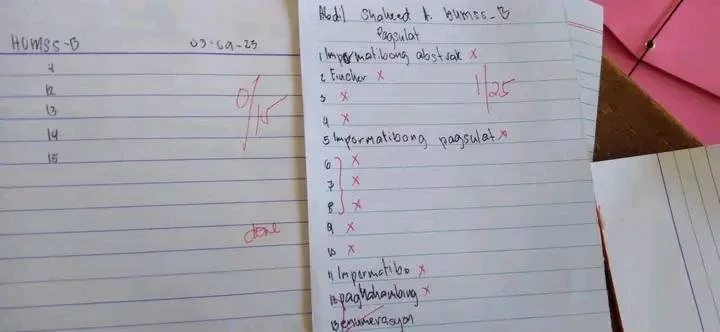 HUMSS-B 03-09-23
12
13
14
15
0/15
done
Abdil Shaheed A. HUMSS-B
Pagsulat
1 Impormatibong abstrak x
2 Fincher x
3 x
4 x
1/25
5 Impormatibong pagsulat x
6 x
7 x
8 x
9 x
10 x
11 Impormatibo x
12 paghahambing x
13 enumerasyon